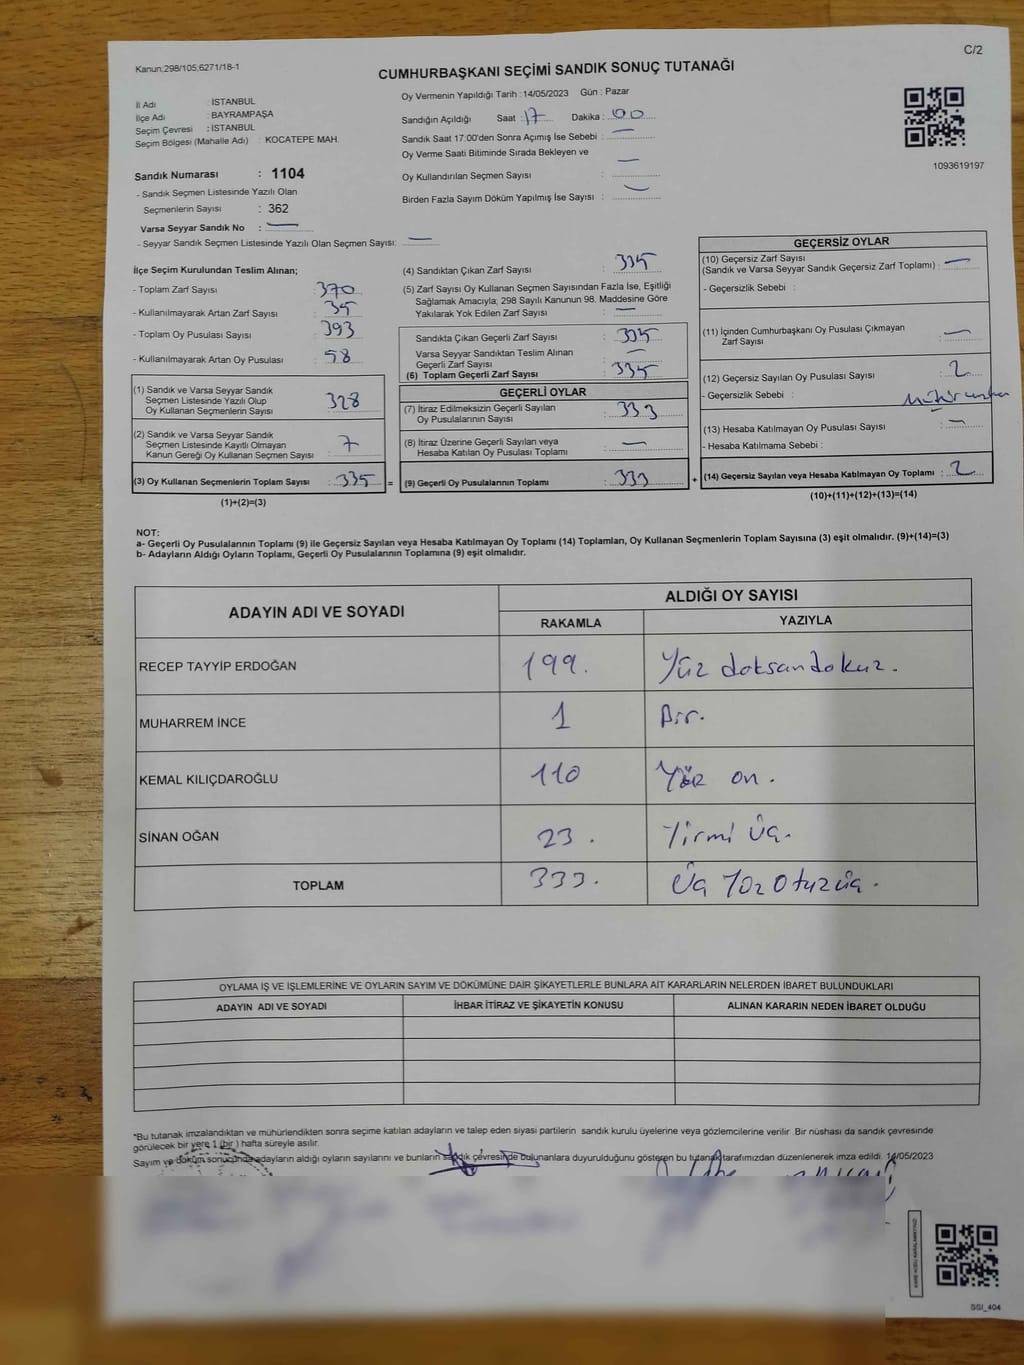 C/2
Kanun:298/105;6271/18-1
CUMHURBAŞKANI SEÇİMİ SANDIK SONUÇ TUTANAĞI
İl Adı : İSTANBUL
İlçe Adı : BAYRAMPAŞA
Seçim Çevresi : İSTANBUL
Seçim Bölgesi (Mahalle Adı) : KOCATEPE MAH.
Sandık Numarası : 1104
- Sandık Seçmen Listesinde Yazılı Olan
Seçmenlerin Sayısı : 362
Varsa Seyyar Sandık No : —
- Seyyar Sandık Seçmen Listesinde Yazılı Olan Seçmen Sayısı: —
Oy Vermenin Yapıldığı Tarih : 14/05/2023 Gün : Pazar
Sandığın Açıldığı Saat : 17 Dakika : 00
Sandık Saat 17:00'den Sonra Açımış İse Sebebi : —
Oy Verme Saati Bitiminde Sırada Bekleyen ve
Oy Kullandırılan Seçmen Sayısı : —
Birden Fazla Sayım Döküm Yapılmış İse Sayısı : —
1093619197
İlçe Seçim Kurulundan Teslim Alınan;
- Toplam Zarf Sayısı : 370
- Kullanılmayarak Artan Zarf Sayısı : 35
- Toplam Oy Pusulası Sayısı : 393
- Kullanılmayarak Artan Oy Pusulası : 58
(1) Sandık ve Varsa Seyyar Sandık
Seçmen Listesinde Yazılı Olup
Oy Kullanan Seçmenlerin Sayısı : 328
(2) Sandık ve Varsa Seyyar Sandık
Seçmen Listesinde Kayıtlı Olmayan
Kanun Gereği Oy Kullanan Seçmen Sayısı : 7
(3) Oy Kullanan Seçmenlerin Toplam Sayısı : 335 =
(1)+(2)=(3)
(4) Sandıktan Çıkan Zarf Sayısı : 335
(5) Zarf Sayısı Oy Kullanan Seçmen Sayısından Fazla İse, Eşitliği
Sağlamak Amacıyla; 298 Sayılı Kanunun 98. Maddesine Göre
Yakılarak Yok Edilen Zarf Sayısı : —
Sandıkta Çıkan Geçerli Zarf Sayısı : 335
Varsa Seyyar Sandıktan Teslim Alınan
Geçerli Zarf Sayısı : —
(6) Toplam Geçerli Zarf Sayısı : 335
GEÇERLİ OYLAR
(7) İtiraz Edilmeksizin Geçerli Sayılan
Oy Pusulasının Sayısı : 333
(8) İtiraz Üzerine Geçerli Sayılan veya
Hesaba Katılan Oy Pusulası Toplamı : —
(9) Geçerli Oy Pusulalarının Toplamı : 333 +
GEÇERSİZ OYLAR
(10) Geçersiz Zarf Sayısı
(Sandık ve Varsa Seyyar Sandık Geçersiz Zarf Toplamı) : —
- Geçersizlik Sebebi :
(11) İçinden Cumhurbaşkanı Oy Pusulası Çıkmayan
Zarf Sayısı : —
(12) Geçersiz Sayılan Oy Pusulası Sayısı : 2
- Geçersizlik Sebebi :
(13) Hesaba Katılmayan Oy Pusulası Sayısı : —
- Hesaba Katılmama Sebebi :
(14) Geçersiz Sayılan veya Hesaba Katılmayan Oy Toplamı : 2
(10)+(11)+(12)+(13)=(14)
NOT:
a- Geçerli Oy Pusulalarının Toplamı (9) ile Geçersiz Sayılan veya Hesaba Katılmayan Oy Toplamı (14) Toplamları, Oy Kullanan Seçmenlerin Toplam Sayısına (3) eşit olmalıdır. (9)+(14)=(3)
b- Adayların Aldığı Oyların Toplamı, Geçerli Oy Pusulalarının Toplamına (9) eşit olmalıdır.
ADAYIN ADI VE SOYADI
ALDIĞI OY SAYISI
RAKAMLA YAZIYLA
RECEP TAYYİP ERDOĞAN 199. Yüz doksandokuz.
MUHARREM İNCE 1 Bir.
KEMAL KILIÇDAROĞLU 110 Yüz on.
SİNAN OĞAN 23. Yirmi üç.
TOPLAM 333. Üç Yüz Otuzüç.
OYLAMA İŞ VE İŞLEMLERİNE VE OYLARIN SAYIM VE DÖKÜMÜNE DAİR ŞİKAYETLERLE BUNLARA AİT KARARLARIN NELERDEN İBARET BULUNDUKLARI
ADAYIN ADI VE SOYADI İHBAR İTİRAZ VE ŞİKAYETİN KONUSU ALINAN KARARIN NEDEN İBARET OLDUĞU
*Bu tutanak imzalandıktan ve mühürlendikten sonra seçime katılan adayların ve talep eden siyasi partilerin sandık kurulu üyelerine veya gözlemcilerine verilir .Bir nüshası da sandık çevresinde
görülecek bir yere 1 (bir ) hafta süreyle asılır.
Sayım ve döküm sonucunda adayların aldığı oyların sayılarını ve bunların sandık çevresinde bulunanlara duyurulduğunu gösteren bu tutanak tarafımızdan düzenlenerek imza edildi. 14/05/2023
SSI_404